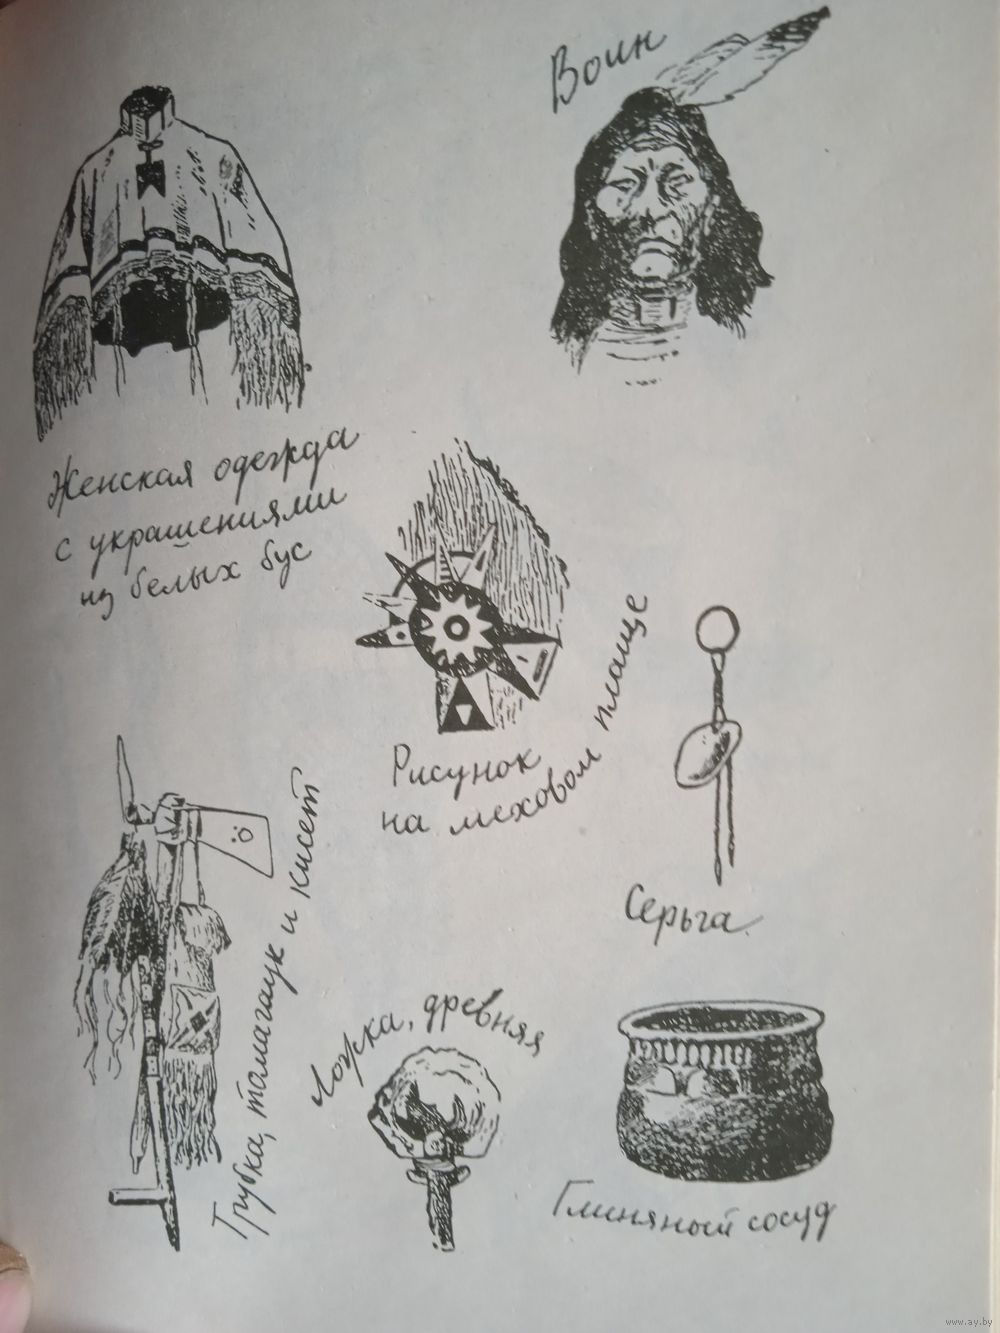 Воин
Женская одежда
с украшениями
из белых бус
Рисунок
на меховом плаще
Серьга
Трубка, томагаук и кисет
Ложка, древняя
Глиняный сосуд
www.ay.by